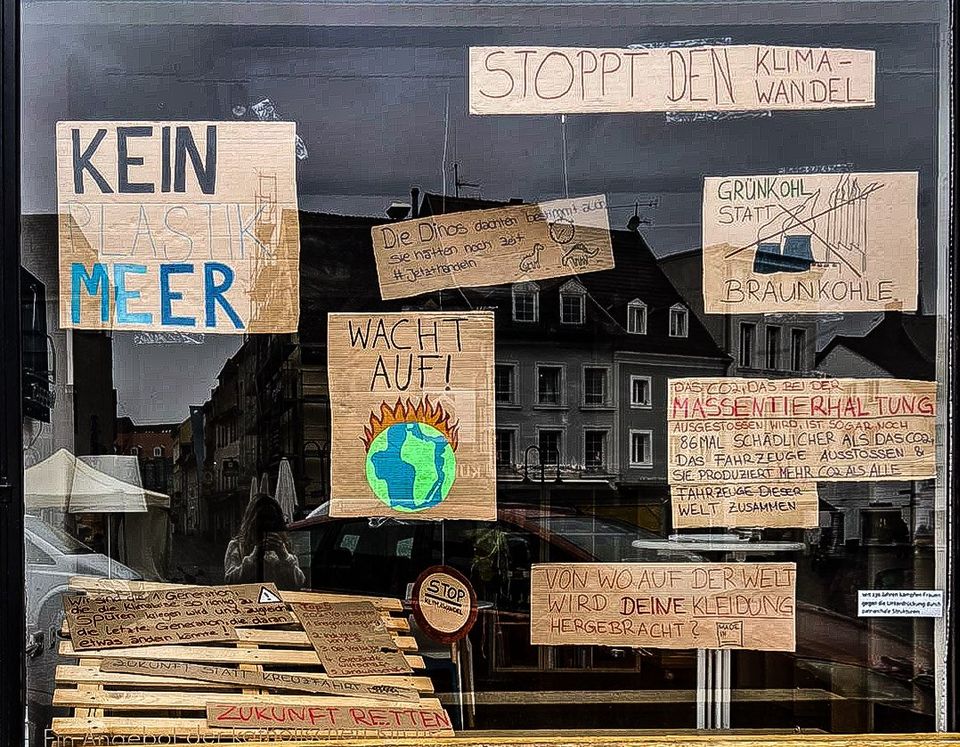 STOPPT DEN KLIMA-
WANDEL
KEIN
PLASTIK
MEER
Die Dinos dachten bestimmt auch
sie hätten noch zeit
#Jetzthandeln
GRÜNKOHL
STATT
BRAUNKOHLE
WACHT
AUF!
DAS CO2, DAS BEI DER
MASSENTIERHALTUNG
AUSGESTOSSEN WIRD, IST SOGAR NOCH
86 MAL SCHÄDLICHER ALS DAS CO2,
DAS FAHRZEUGE AUSSTOSSEN &
SIE PRODUZIERT MEHR CO2 ALS ALLE
FAHRZEUGE DIESER
WELT ZUSAMMEN
VON WO AUF DER WELT
WIRD DEINE KLEIDUNG
HERGEBRACHT? MADE
IN
seit 230 Jahren kämpfen Frauen
gegen die Unterdrückung durch
patriarchale Strukturen
Wir sind die 1 Generation
die die Klimakrise so richtig zu
Spüren kriegen wird und zugleich
die letzte Generation die daran
etwas ändern könnte
STOP
KLIMAWANDEL
ZUKUNFT STATT KREUZFAHRT
ZUKUNFT RETTEN
Ein Angebot der katholischen